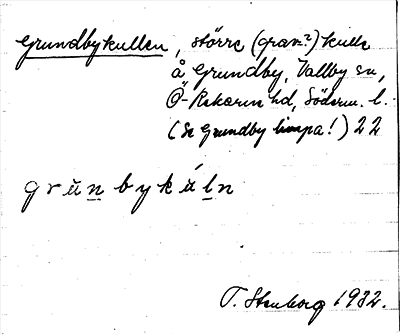 Grundbykullen, större (gran?) kulle
å Grundby, Vallby sn,
Ö-Rekarne hd, Söderm. l.
(Se Grundby limpa!) 22
grŭn bykúln
T. Stenborg 1932.